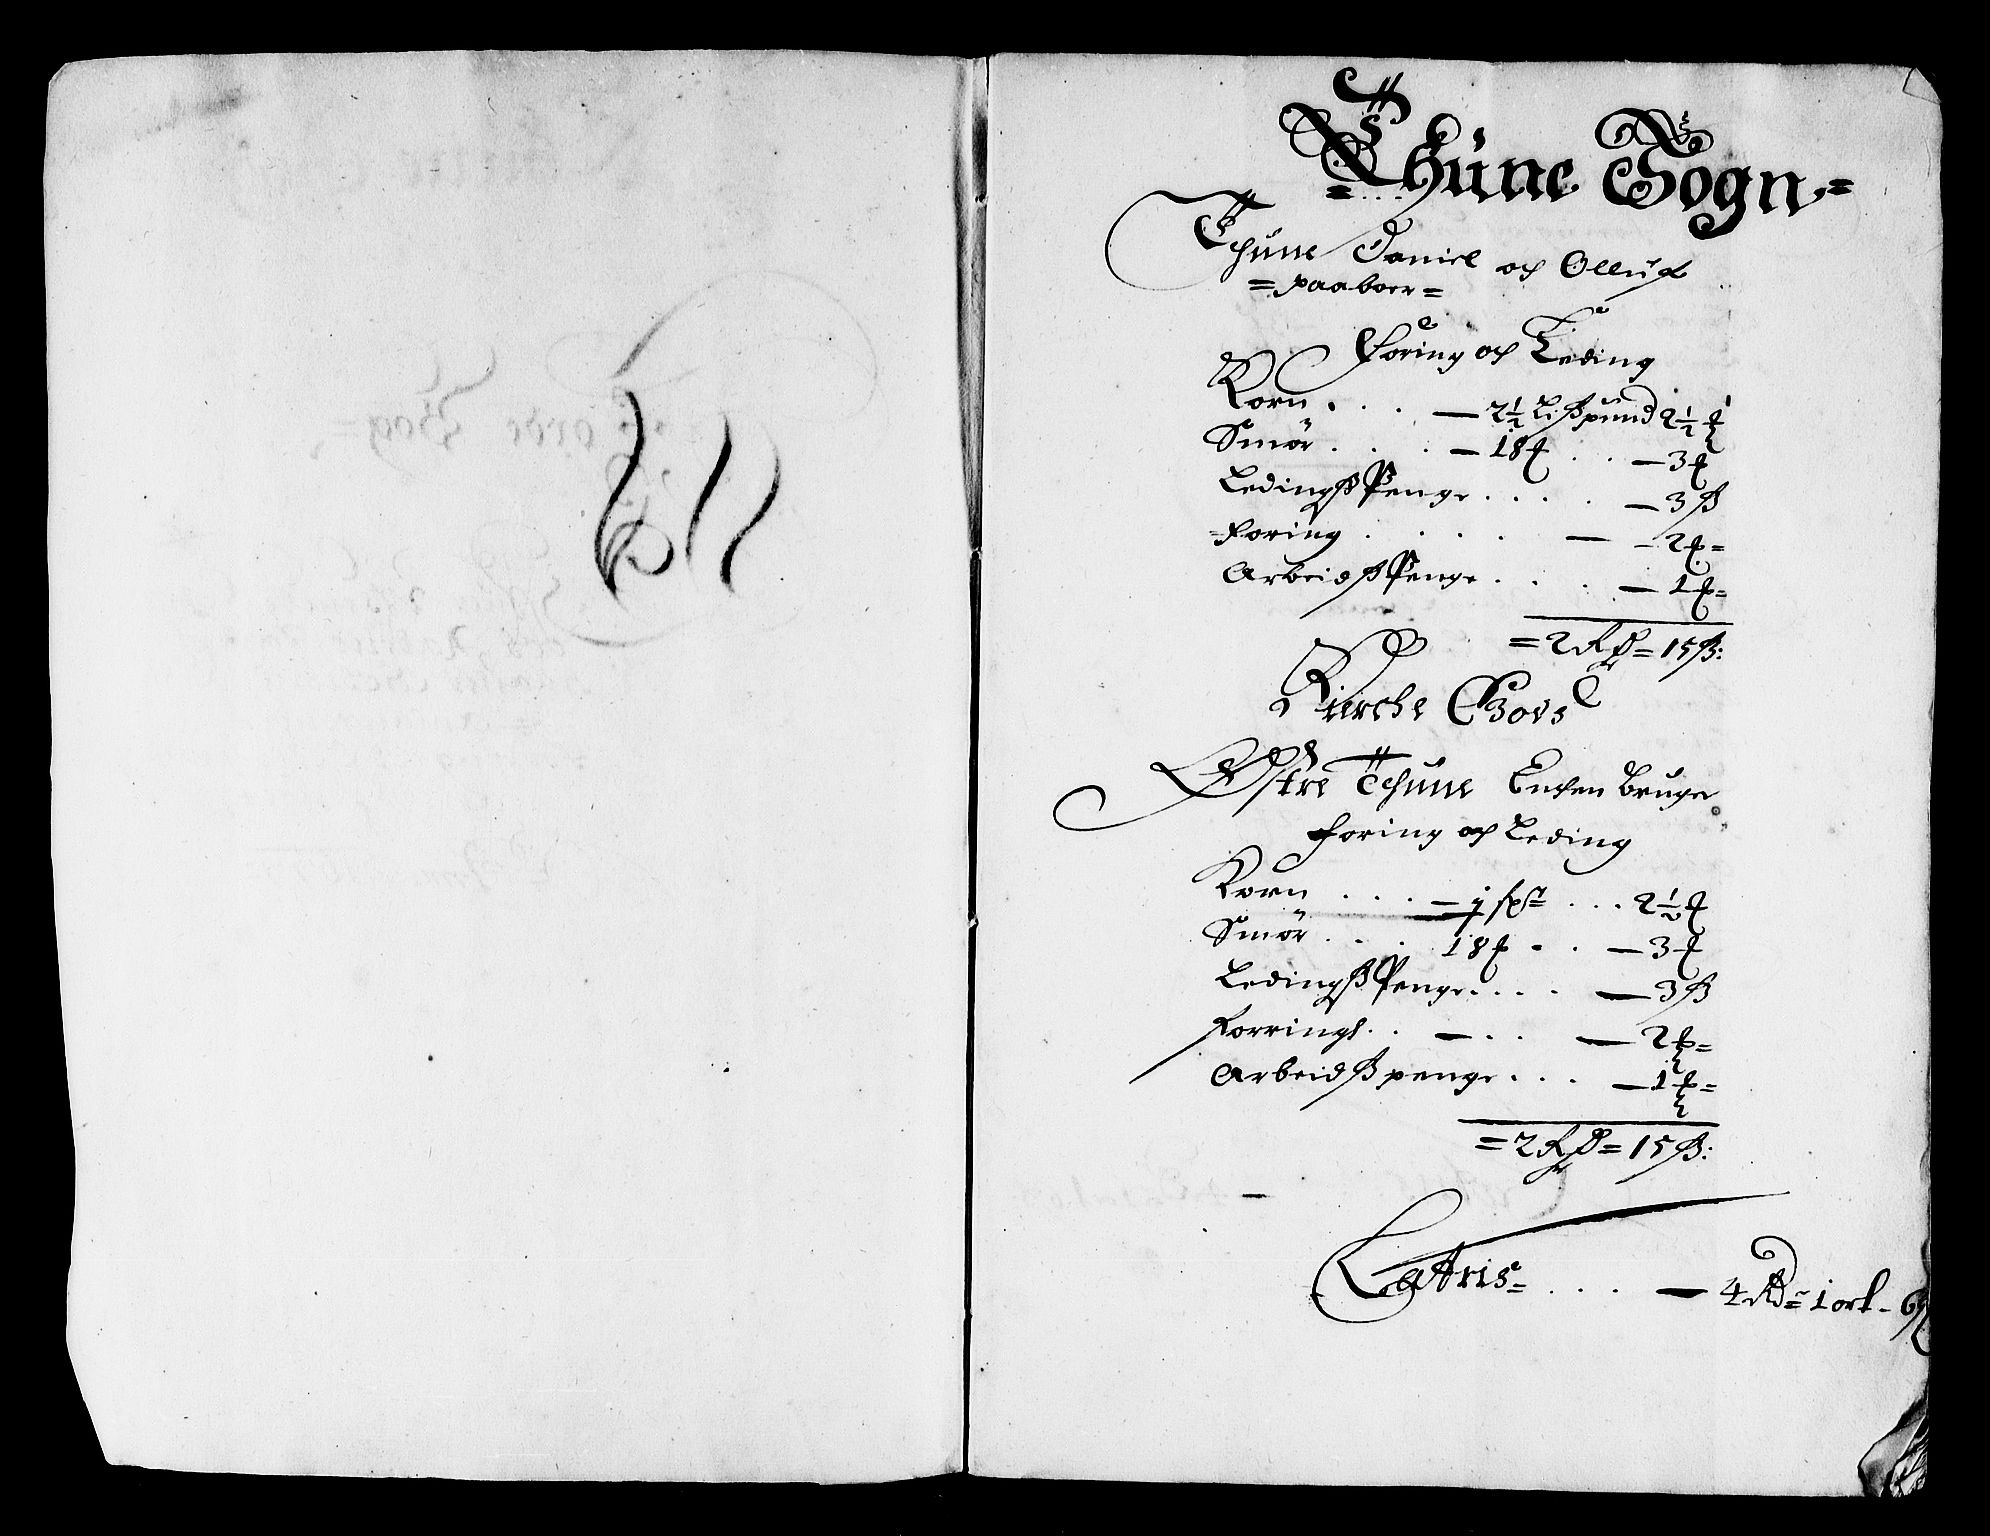 Thüne Sogn
Thüne Daniel och Olluf
paaboer
Foring och Leding
Korn . . . — 2½ Lißpund 2½ ℔
Smør . . . — 18 ℔ . . — 3 ℔
LedingßPenge . . . . — 3 ß
Foring . . . . — 2
ArbeidßPenge . . . — 1
2 Rd 15 ß:
Kirche Godz
Østre Thüne Encken Bruger
Foring och Leding
Korn . . . — j . . . 2½
Smør . . . 18 . . — 3
LedingßPenge . . . . — 3 ß
Forring . . — . . — 2
Arbeidßpenge . . . — 1
2 Rd 15 ß:
Lateris . . . — 4 Rd 1 ort 6